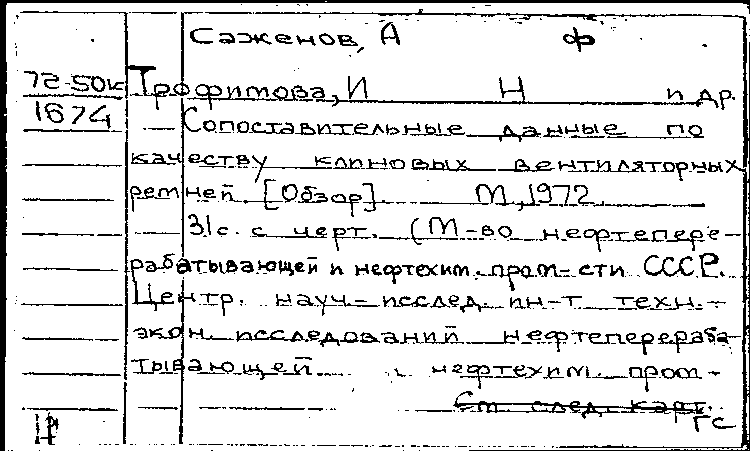 Саженов, А Ф
72-50к Трофимова, И Н и др.
1674 Сопоставительные данные по
качеству клиновых вентиляторных
ремней. [Обзор]. М, 1972.
31с. с черт. (М-во нефтепере-
рабатывающей и нефтехим. пром-сти СССР.
Центр. науч-исслед. ин-т техн.-
экон. исследований нефтеперераба-
тывающей и нефтехим. пром-
См. след. карт.
ГС